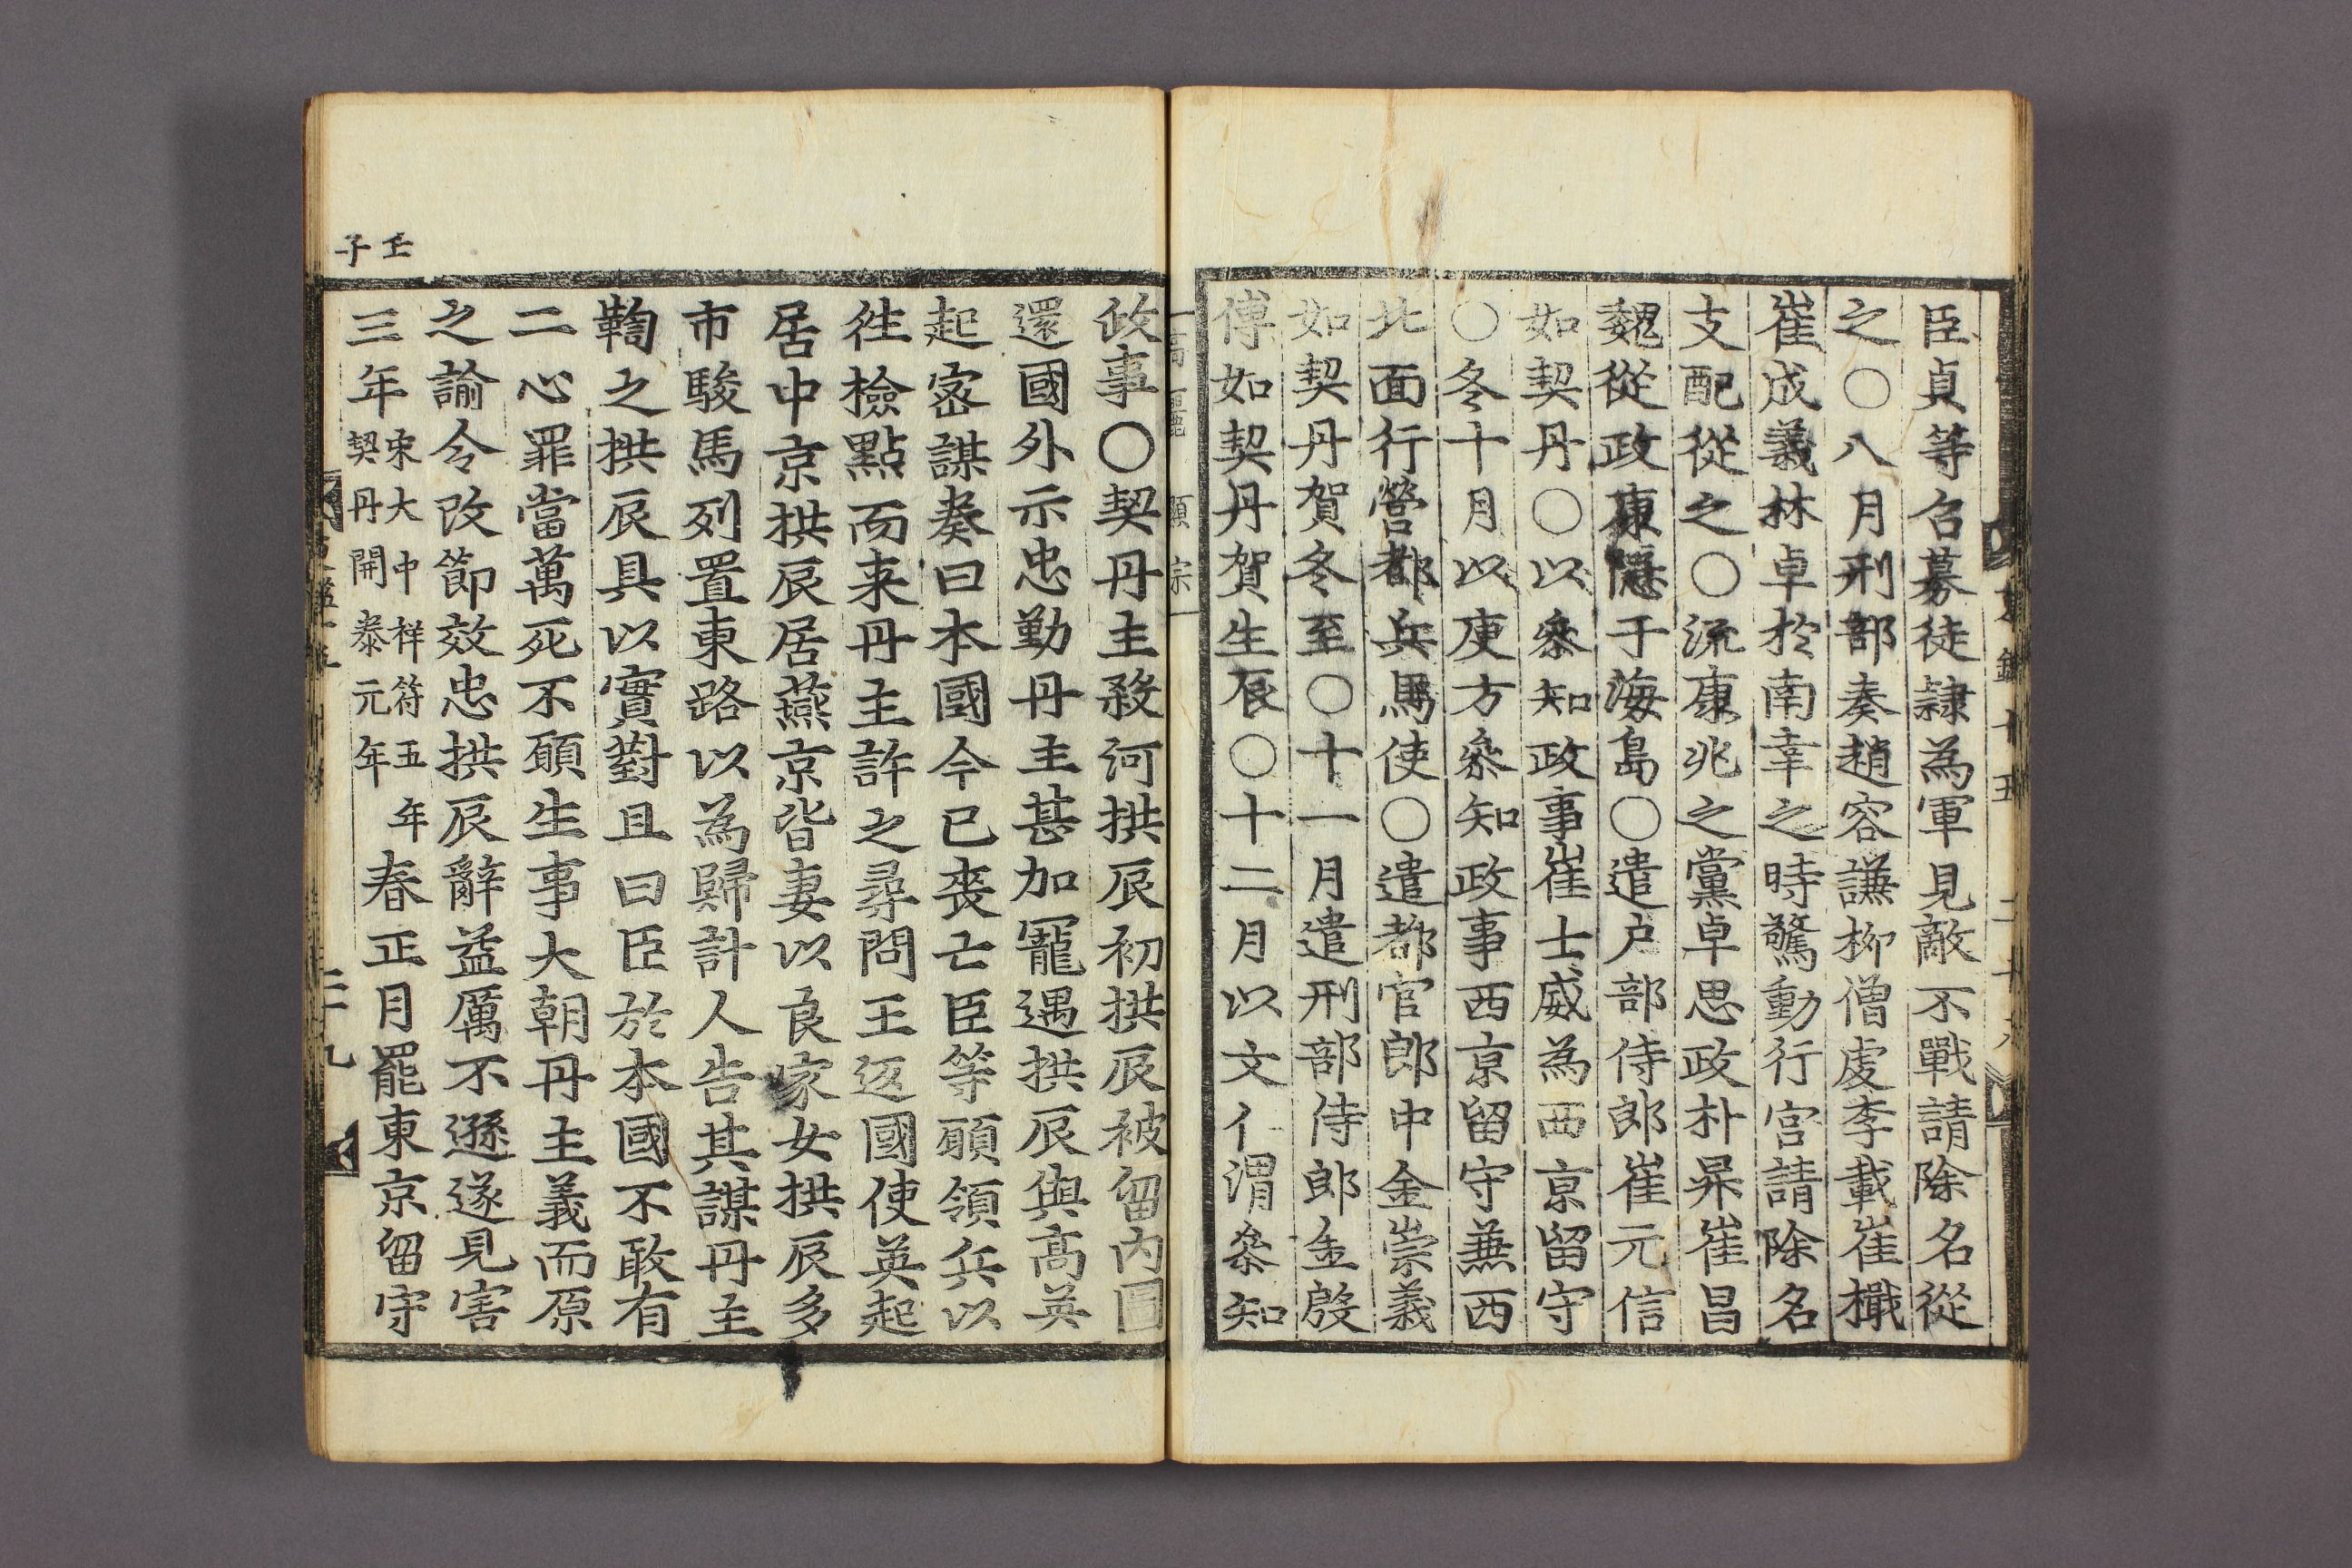 臣貞等召募徒隷為軍見敵不戰請除名從
之〇八月刑部奏趙容謙柳僧虔李載崔檝
崔成義林卓於南幸之時驚動行宮請除名
支配從之〇流康兆之黨卓思政朴昇崔昌
魏從政康隱于海島〇遣户部侍郎崔元信
如契丹〇以叅知政事崔士威為西京留守
〇冬十月以庾方叅知政事西京留守兼西
北面行營都兵馬使〇遣都官郎中金崇義
如契丹賀冬至〇十一月遣刑部侍郎金殷
傅如契丹賀生辰〇十二月以文仁渭叅知
高麗 顯宗
政事〇契丹主殺河拱辰初拱辰被留內圖
還國外示忠勤丹主甚加寵遇拱辰與髙英
起宻謀奏曰本國今已喪亡臣等願領兵以
徃檢點而来丹主許之尋問王返國使英起
居中京拱辰居燕京皆妻以良家女拱辰多
市駿馬列置東路以為歸計人告其謀丹主
鞫之拱辰具以實對且曰臣於本國不敢有
二心罪當萬死不願生事大朝丹主義而原
之諭令改節效忠拱辰辭益厲不遜遂見害
壬子
三年宋大中祥符五年契丹開泰元年春正月罷東京留守